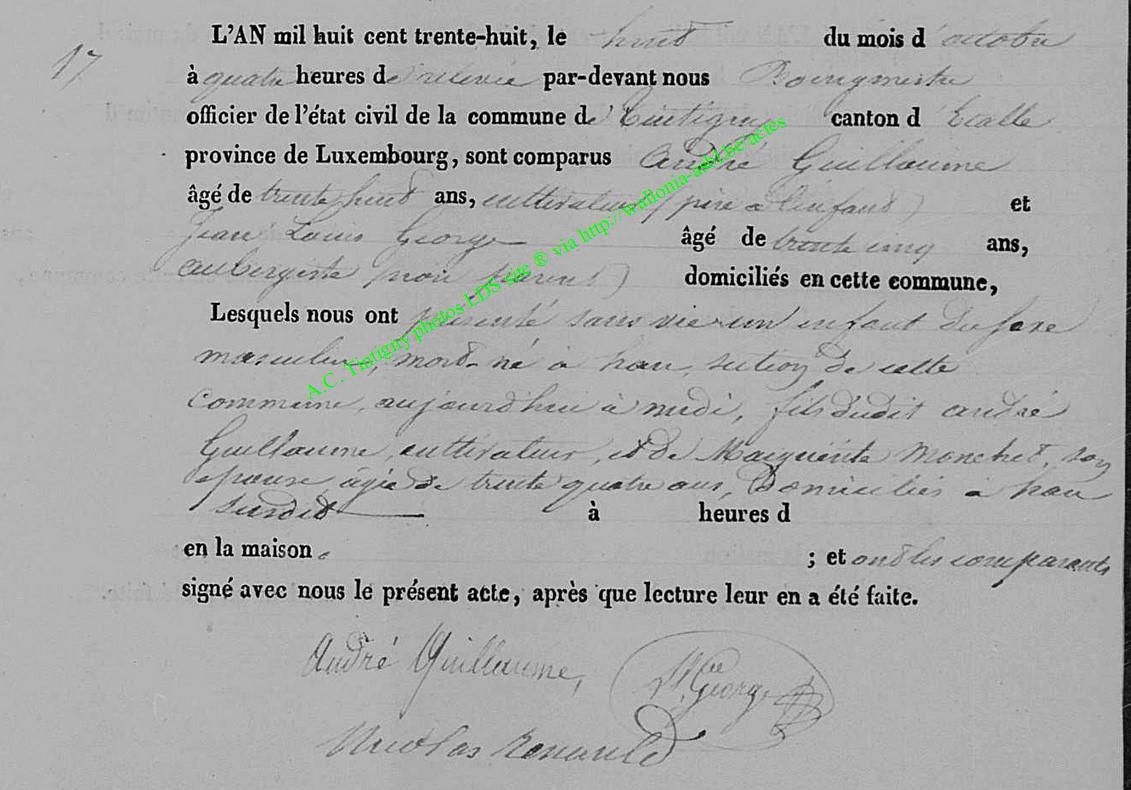 17
L'AN mil huit cent trente-huit, le huit du mois d'octobre
à quatre heures de relevée par-devant nous Bourgmestre
officier de l'état civil de la commune de Tintigny canton d'Etalle
province de Luxembourg, sont comparus André Guillaume
âgé de trente huit ans, cultivateur (père à l'enfant) et
Jean Louis George âgé de trente cinq ans,
aubergiste (non parent) domiciliés en cette commune,
Lesquels nous ont présenté sans vie un enfant du sexe
masculin, mort-né à han, section de cette
commune, aujourd'hui à midi, fils dudit andré
Guillaume, cultivateur, et de Marguerite Monchet, son
épouse âgée de trente quatre ans, Domiciliés à han
susdit à heures d
en la maison ; et ont les comparants
signé avec nous le présent acte, après que lecture leur en a été faite.
André Guillaume, George
Nicolas Renauld
A.C. Tintigny photos LDS site ® via http://wallonia-asbl.be/actes